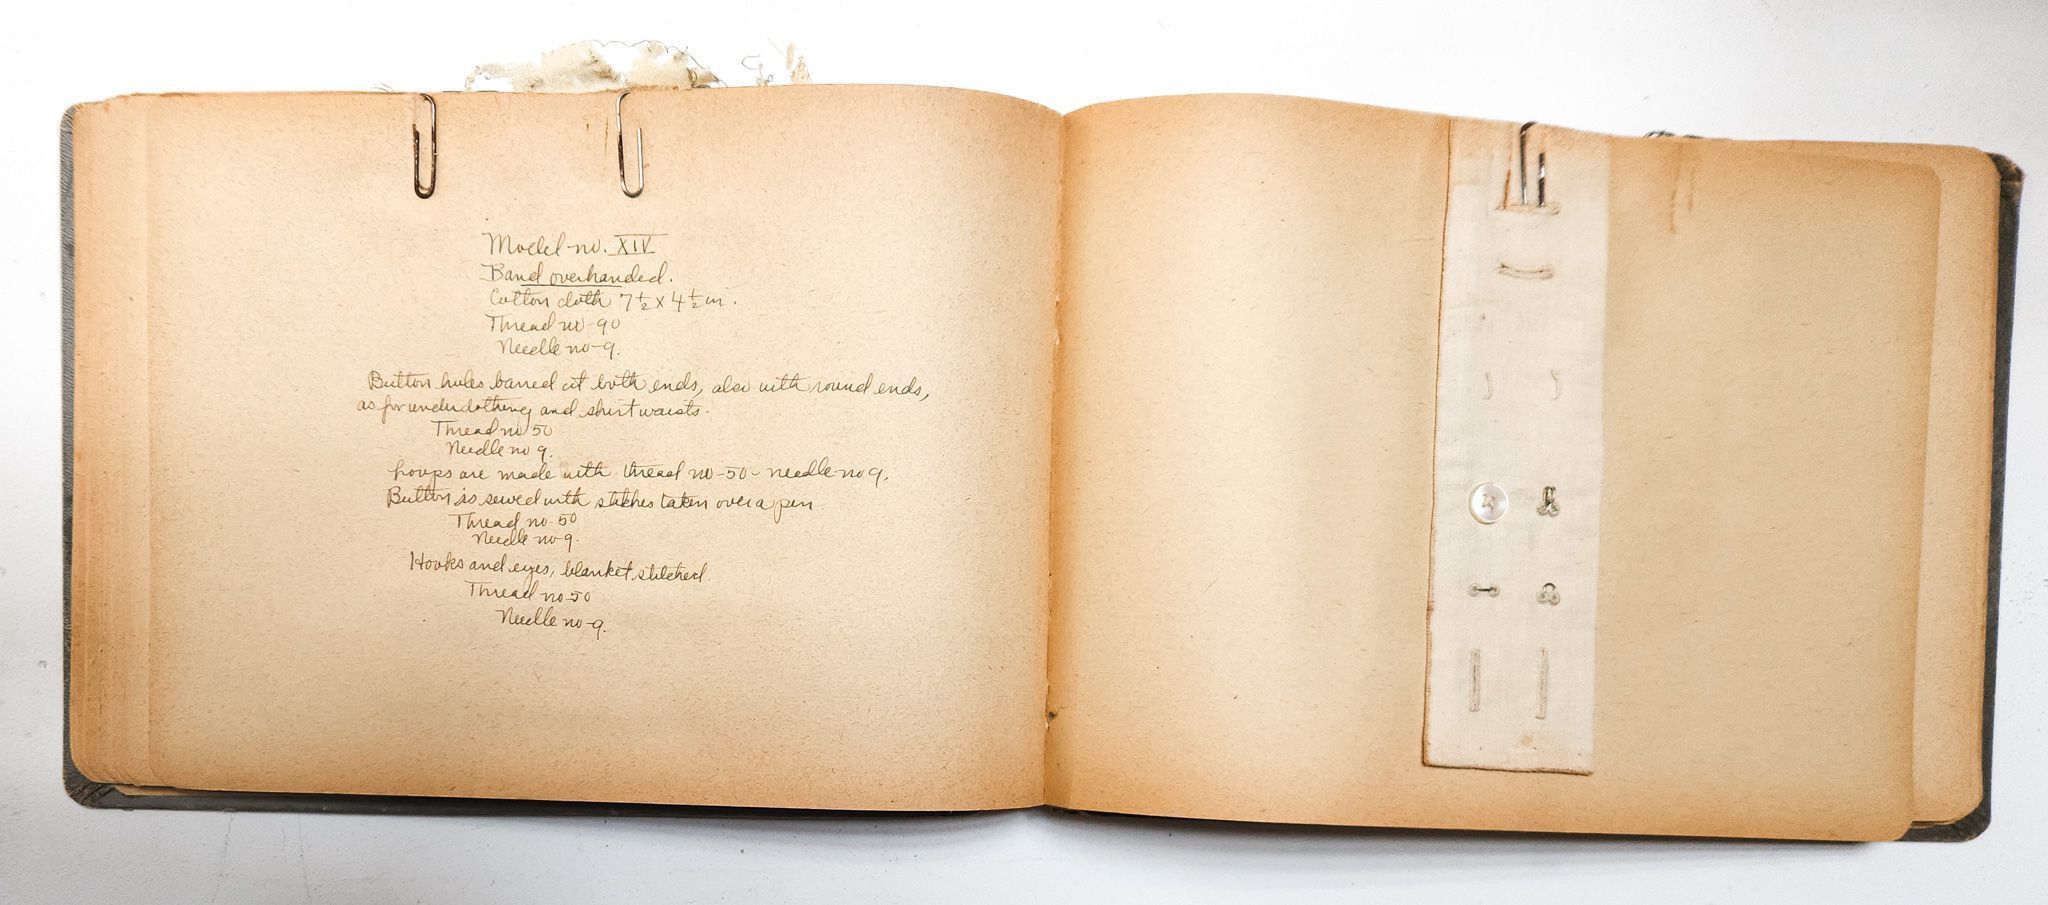 Model no. XIV
Band overhanded.
Cotton cloth 7 1/2 x 4 1/2 in.
Thread no - 90
Needle no - 9.
Button holes barred at both ends, also with round ends,
as for underclothing and shirt waists.
Thread no 50
Needle no 9.
Loops are made with thread no - 50 - needle no 9.
Button is sewed with stitches taken over a pin.
Thread no - 50
Needle no - 9.
Hooks and eyes, blanket stitched.
Thread no - 50
Needle no - 9.